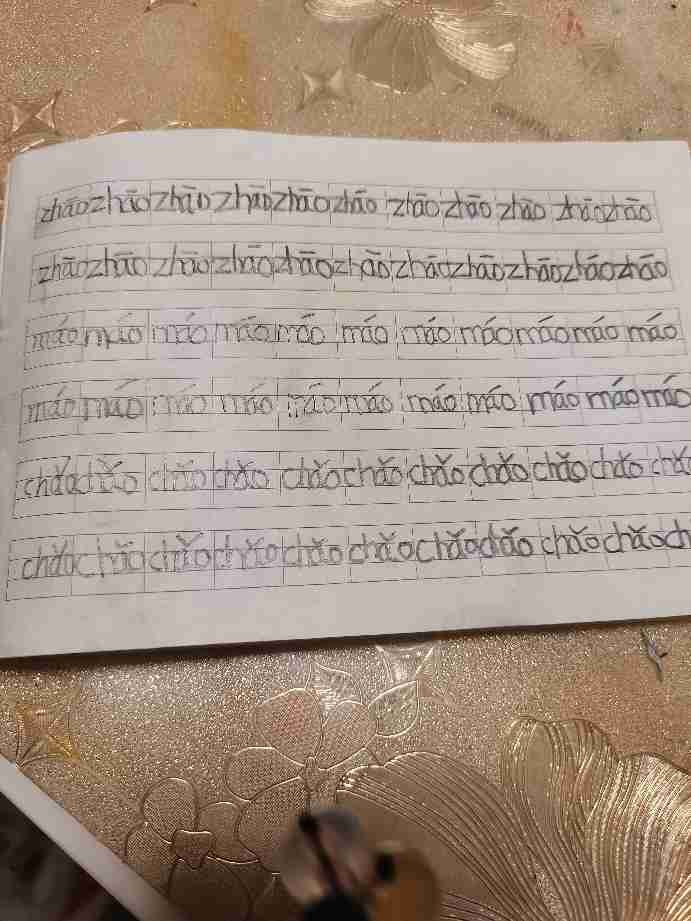 zhāo zhāo zhāo zhāo zhāo zhāo zhāo zhāo zhāo zhāo zhāo
zhāo zhāo zhāo zhāo zhāo zhāo zhāo zhāo zhāo zhāo zhāo
máo máo máo máo máo máo máo máo máo máo máo
máo máo máo máo máo máo máo máo máo máo máo
chǎo chǎo chǎo chǎo chǎo chǎo chǎo chǎo chǎo chǎo
chǎo chǎo chǎo chǎo chǎo chǎo chǎo chǎo chǎo chǎo